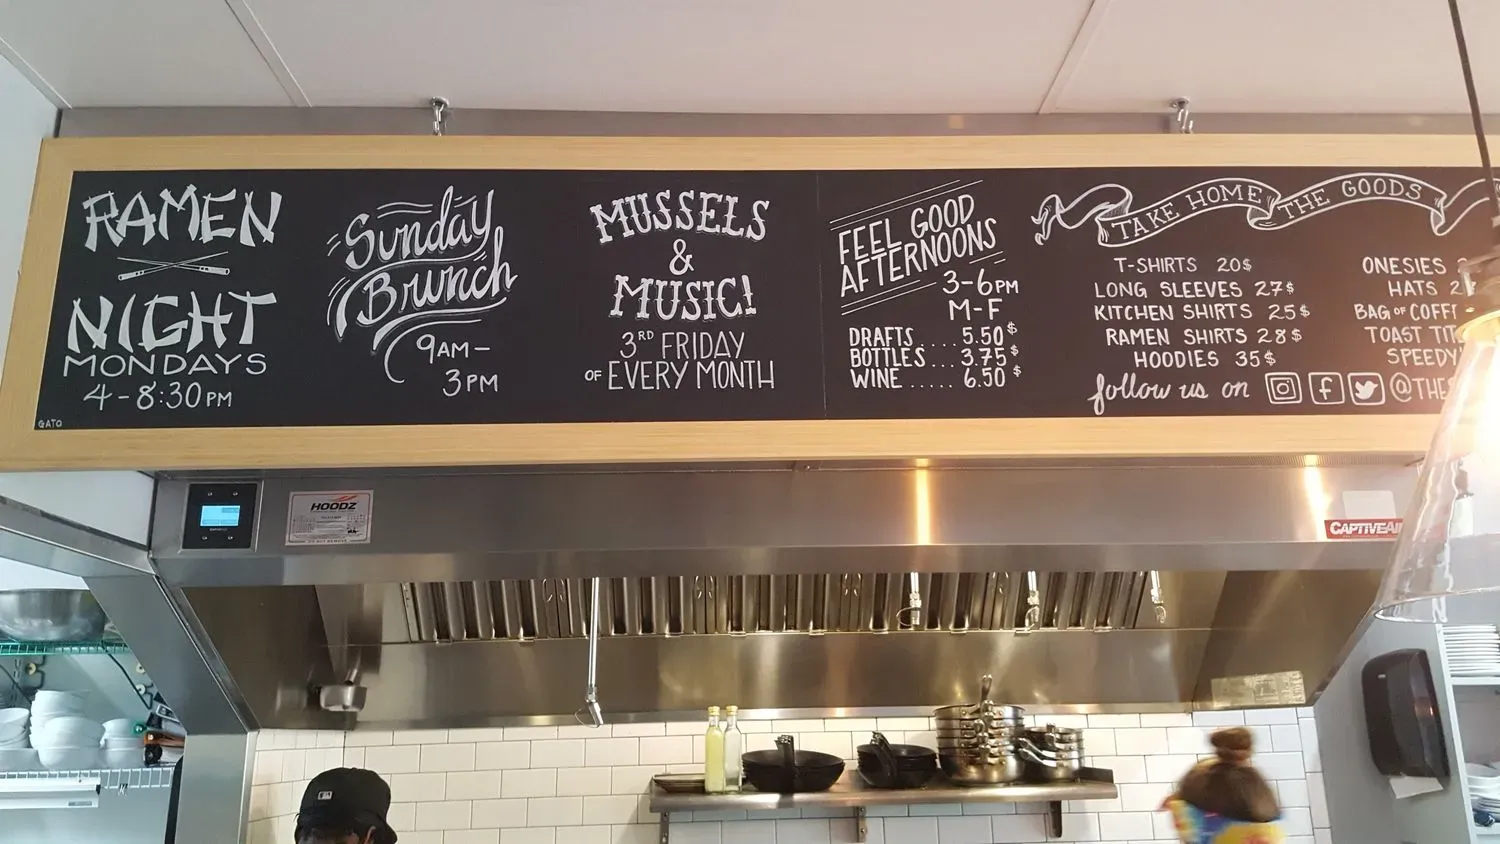 RAMEN
NIGHT
MONDAYS
4-8:30PM
GATO
Sunday
Brunch
9AM-
3PM
MUSSELS
&
MUSIC!
3RD FRIDAY
OF EVERY MONTH
FEEL GOOD
AFTERNOONS
3-6PM
M-F
DRAFTS .... 5.50$
BOTTLES ... 3.75$
WINE ..... 6.50$
TAKE HOME THE GOODS
T-SHIRTS 20$
LONG SLEEVES 27$
KITCHEN SHIRTS 25$
RAMEN SHIRTS 28$
HOODIES 35$
ONESIES
HATS
BAG OF
TOAST
SPEEDY
follow us on
HOODZ
CAPTIVEAI